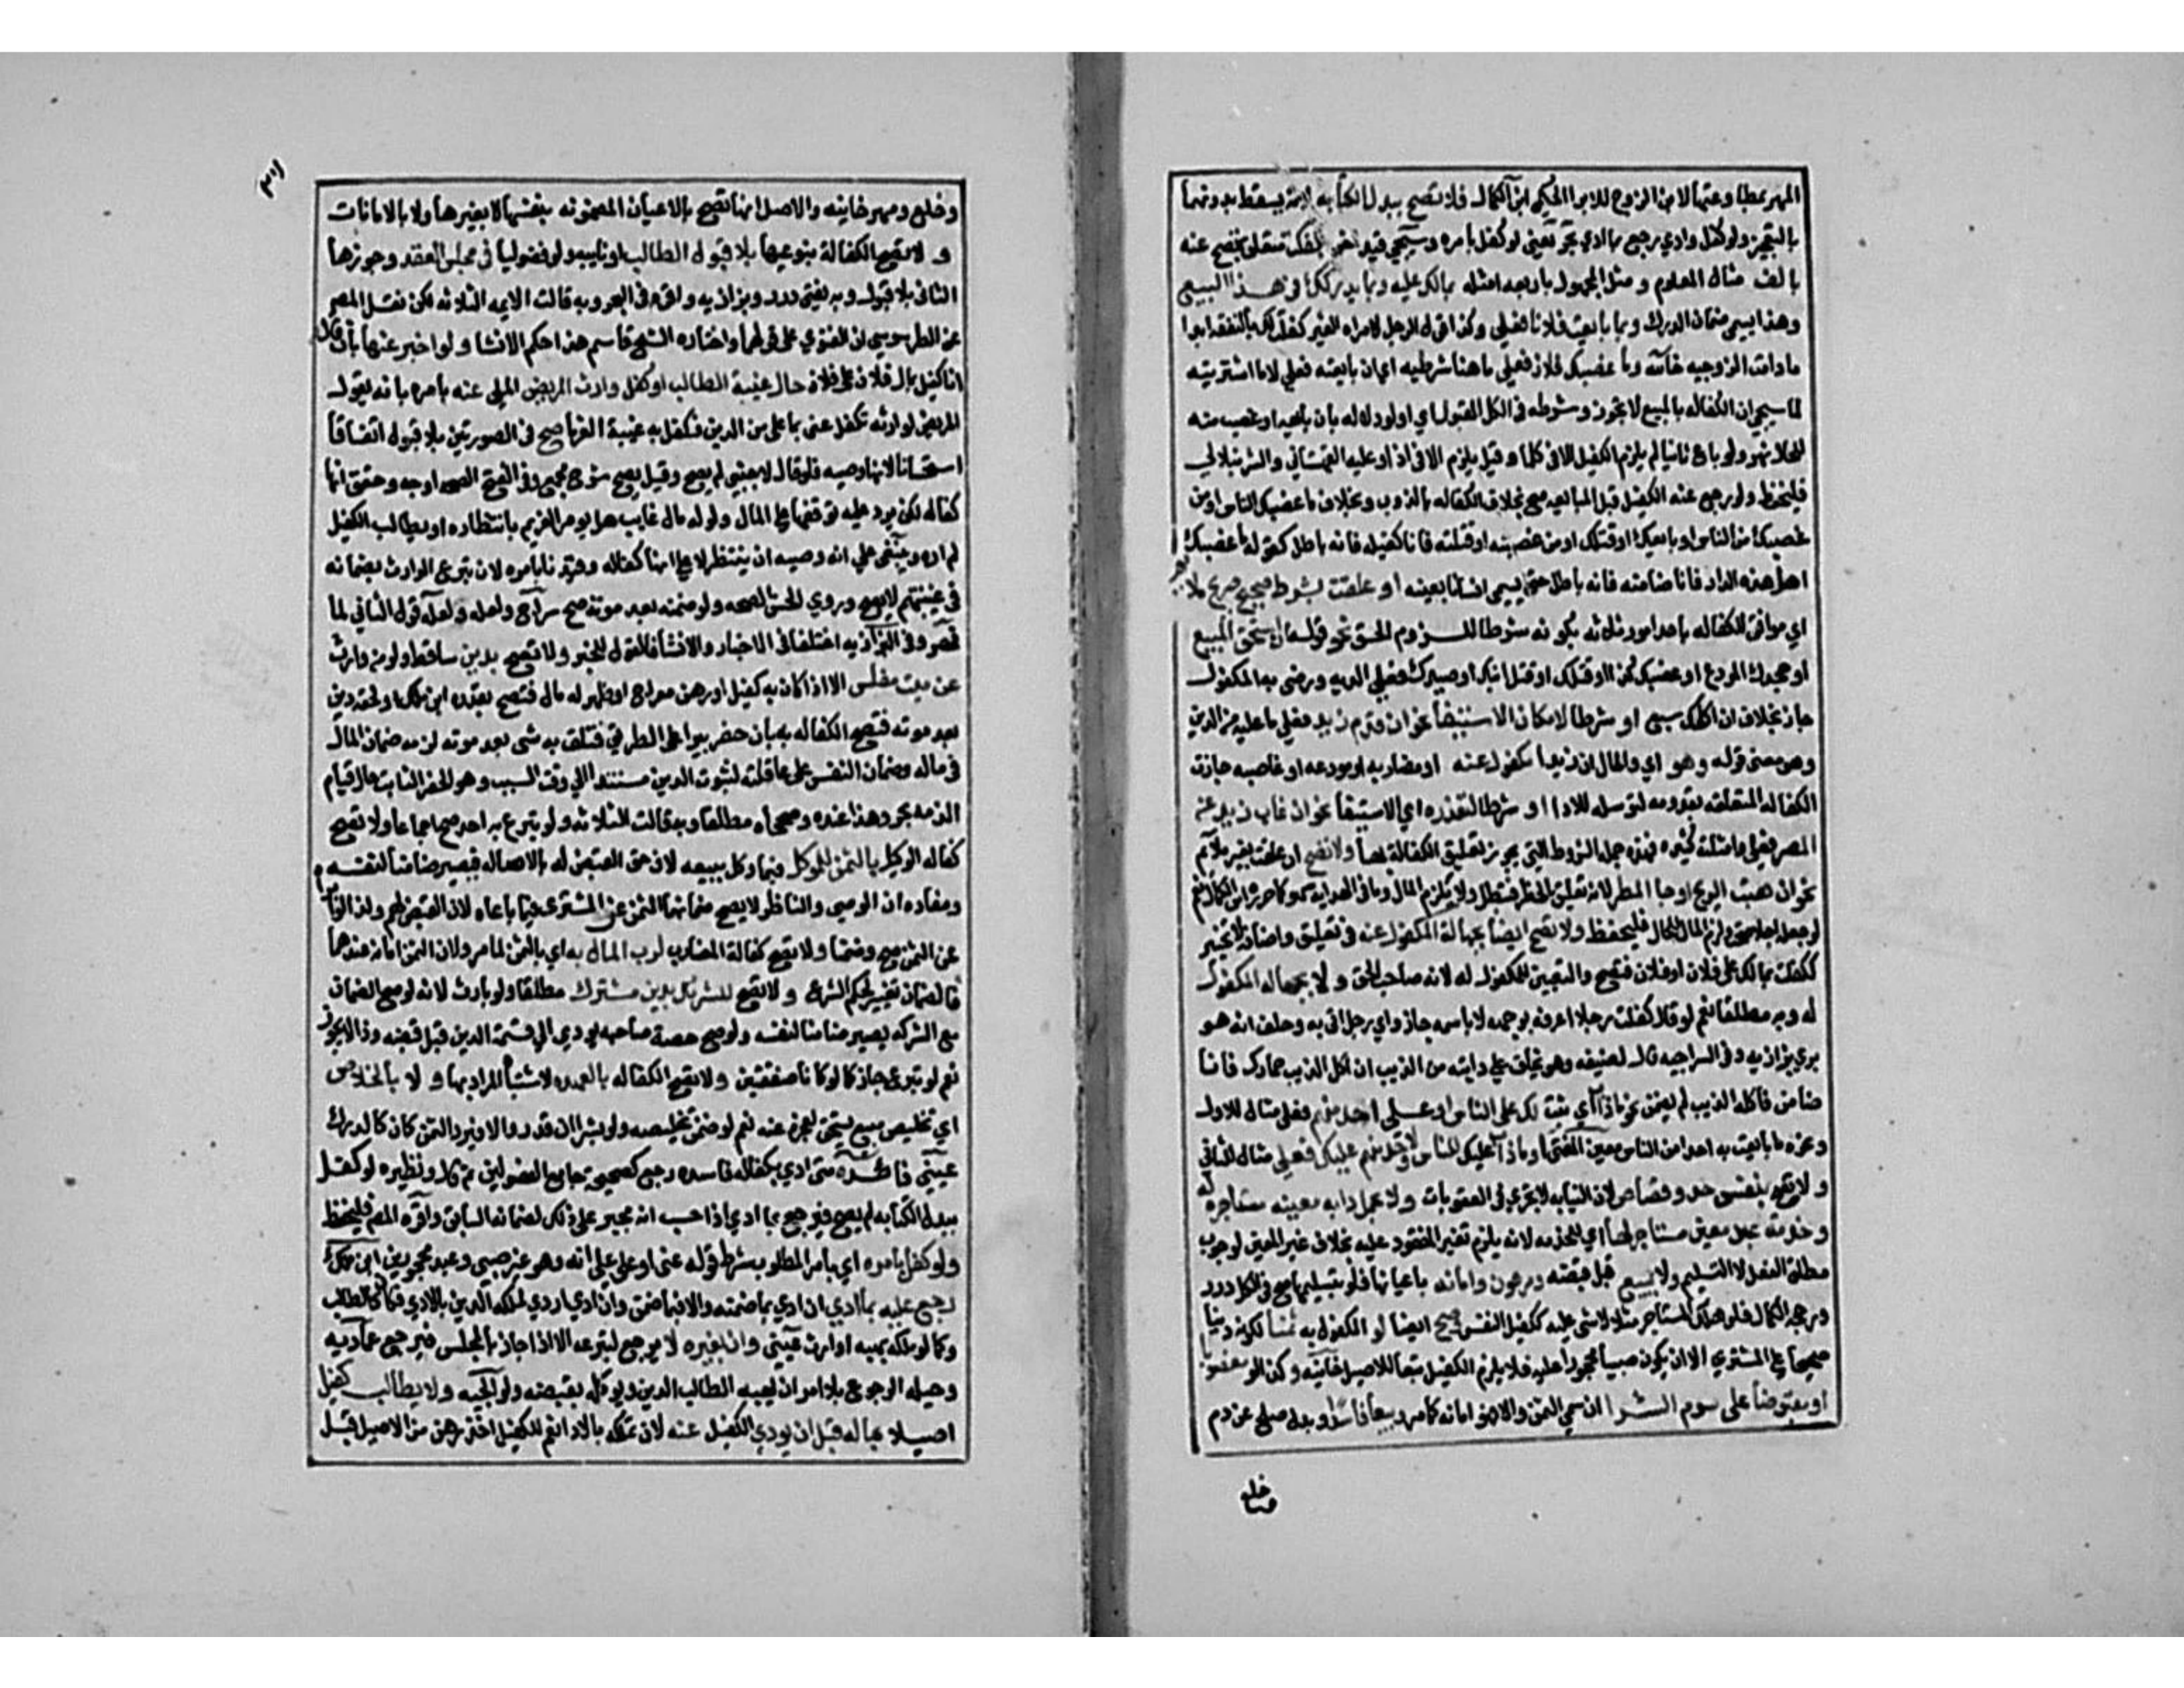 المهر بمطاوعتها لابن الزوج للابرا الحكمي ابن الكمال فلا تصح ببدل الكتابه لانه يسقط بدونهما
بالتعجيز ولو كفل وادي رجع بما ادي بحر يعني لو كفل بامره وسيجي قيد اخر بكفلت متعلق بتصح عنه
بالف مثال المعلوم ومثل المجهول باربعه امثله بمالك عليه وبما يدركك في هذا البيع
وهذا يسمي ضمان الدرك وبما بايعت فلانا فعلي وكذا قول الرجل لامراه الغير كفلت لك بالنفقه ابدا
مادامت الزوجيه خانيه وما غصبك فلان فعلي ما هنا شرطيه اي ان بايعته فعلي لا ما اشتريته
لما سيجي ان الكفاله بالمبيع لا تجوز وشرطه في الكل القبول اي ولو دلاله بان بايعه او غصب منه
للحال نهر ولو باع ثانيا لم يلزم الكفيل الا في كلما وقيل يلزم الا في اذا وعليه القهستاني والشرنبلالي
فليحفظ ولو رجع عنه الكفيل قبل المبايعه صح بخلاف الكفاله بالذوب وبخلاف ما غصبك الناس او من
غصبك من الناس او بايعك او قتلك او من غصبته او قتلته فانا كفيله فانه باطل كقوله ما غصبك
اهل هذه الدار فانا ضامنه فانه باطل حتي يسمي انسانا بعينه او علقت بشرط صحيح صريح ملا
اي موافق للكفاله باحد امور ثلاثه بكونه شرطا للزوم الحق نحو قوله ان استحق المبيع
او جحدك المودع او غصبك كذا او قتلك او قتل ابنك او صيدك فعلي الديه ورضي به المكفول
جاز بخلاف ان اكلك سبع او شرطا لامكان الاستيفا نحو ان قدم زيد فعلي ما عليه من الدين
وهو معني قوله وهو اي والحال ان زيدا مكفول عنه او مضاربه او مودعه او غاصبه جازت
الكفاله المتعلقه بقدومه لتوسله للادا او شرطا لتعذره اي الاستيفا نحو ان غاب زيد عن
المصر فعلي وامثلته كثيره فهذه جمله الشروط التي يجوز تعليق الكفالة بها ولا تصح ان علقت بغير ملائم
نحو ان هبت الريح او جا المطر لانه تعليق بالخطر فتبطل ولا يلزم المال وما في الهدايه سهو كما حرره ابن الكمال نعم
لو جعله اجلا صحت ولزم المال للحال فليحفظ ولا تصح ايضا بجهالة المكفول عنه في تعليق واضافة لا تخيير
ككفلت بمالك على فلان او فلان فتصح والتعيين للمكفول له لانه صاحب الحق و لا بجهاله المكفول
له وبه مطلقا نعم لو قال كفلت رجلا اعرفه بوجهه لا باسمه جاز واي رجل اتي به وحلف انه هو
بري بزازيه وفي السراجيه قال لضيفه وهو يخاف علي دابته من الذيب ان اكل الذيب حمارك فانا
ضامن فاكله الذيب لم يضمن نحو ما ذاب اي ثبت لك على الناس او على احد منهم فعلي مثال للاول
ونحوه ما بايعت به احدا من الناس معين الفتوي او ما ذاب عليك للناس او لاحد منهم عليك فعلي مثال للثاني
و لا تصح بنفس حد وقصاص لان النيابه لا تجري في العقوبات ولا بحمل دابه معينه مستاجره له
وخدمة عبد معين مستاجر لها اي للخدمه لانه يلزم تغير المعقود عليه بخلاف غير المعين لوجوب
مطلق الفعل لا التسليم ولا بمبيع قبل قبضه ومرهون وامانه باعيانها فلو بتسليمها صح في الكل درر
ورجحه الكمال فلو هلك المستاجر مثلا لا شي عليه ككفيل النفس وصح ايضا لو المكفول به ثمنا لكونه دينا
صحيحا علي المشتري الا ان يكون صبيا محجورا عليه فلا يلزم الكفيل تبعا للاصيل خانيه وكذا لو مغصوبا
او مقبوضا على سوم الشرا ان سمي الثمن والا فهو امانه كما مر ومبيعا فاسدا وبدل صلح عن دم
وخلع
وخلع ومهر خانيه والاصل انها تصح بالاعيان المضمونه بنفسها لا بغيرها ولا بالامانات
و لا تصح الكفالة بنوعيها بلا قبول الطالب او نايبه ولو فضوليا في مجلس العقد وجوزها
الثاني بلا قبول وبه يفتي درر وبزازيه واقره في البحر وبه قالت الايمه الثلاثه لكن نقل المصن
عن الطرسوسي ان الفتوي علي قولهما واختاره الشيخ قاسم هذا حكم الانشا ولو اخبر عنها بان قال
انا كفيل بمال فلان على فلان حال غيبة الطالب او كفل وارث المريض الملي عنه بامره بانه يقول
المريض لوارثه تكفل عني بما علي من الدين فكفل به مع غيبة الغرما صح في الصورتين بلا قبول اتفاقا
استحسانا لانها وصيه فلو قال لاجنبي لم يصح وقيل يصح شرح مجمع وفي الفتح الصحه اوجه وحقق انها
كفاله لكن يرد عليه توقفها على المال ولو له مال غايب هل يومر الغريم بانتظاره او يطالب الكفيل
لم اره وينبغي علي انه وصيه ان ينتظر لا علي انها كفاله وقيدنا بامره لان تبرع الوارث بضمانه
في غيبتهم لا يصح وروي الحسن الصحه ولو ضمنه بعد موته صح سراج ولعله قول الثاني لما
مر وفي البزازيه اختلفا في الاخبار والانشا فالقول للمخبر ولا تصح بدين ساقط ولو من وارث
عن ميت مفلس الا اذا كان به كفيل او رهن معراج او ظهر له مال فتصح بقدره ابن ملك او لحقه دين
بعد موته فتصح الكفاله به بان حفر بيرا على الطريق فتلف به شي بعد موته لزمه ضمان المال
في ماله وضمان النفس على عاقلته لثبوت الدين مستندا الي وقت السبب وهو الحفر الثابت حال قيام
الذمه بحر وهذا عنده وصححاه مطلقا وبه قالت الثلاثه ولو تبرع به احد صح اجماعا ولا تصح
كفاله الوكيل بالثمن للموكل فيما وكل ببيعه لان حق القبض له بالاصاله فيصير ضامنا لنفسه
ومفاده ان الوصي والناظر لا يصح ضمانهما الثمن عن المشتري فيما باعاه لان القبض لهما ولذا لو ابراه
عن الثمن صح وضمنا ولا تصح كفالة المضارب لرب المال به اي بالثمن لما مر ولان الثمن امانة عندهما
فالضمان تغيير لحكم الشرع و لا تصح للشريك بدين مشترك مطلقا ولو بارث لانه لو صح الضمان
مع الشركه يصير ضامنا لنفسه ولو صح حصة صاحبه يودي الي قسمة الدين قبل قبضه وذا لا يجوز
نعم لو تبرع جاز كما لو كانا صفقتين ولا تصح الكفاله بالعهده لاشتباه المراد بها و لا بالخلاص
اي تخليص مبيع يستحق لعجزه عنه نعم لو ضمن تخليصه ولو بشرا ان قدر والا فيرد الثمن كان كالدرك
عيني فائدة متي ادي بكفاله فاسده رجع كصحيحه جامع الفصولين ثم قال ونظيره لو كفل
ببدل الكتابه لم يصح فيرجع بما ادي اذا حسب انه مجبر على ذلك لضمانه السابق واقره المصن فليحفظ
ولو كفل بامره اي بامر المطلوب بشرط قوله عني او علي علي انه وهو غير صبي وعبد محجورين ابن ملك
رجع عليه بما ادي ان ادي بما ضمنه والا فبما ضمن وان ادي اردي لملكه الدين بالادا فكان كالطالب
وكما لو ملكه بهبه او ارث عيني وان بغيره لا يرجع لتبرعه الا اذا اجاز بالمجلس فيرجع عماديه
وحيله الرجوع بلا امر ان يهبه الطالب الدين ويوكله بقبضه ولوالجيه ولا يطالب كفيل
اصيلا بماله قبل ان يودي الكفيل عنه لان تملكه بالادا نعم للكفيل اخذ رهن من الاصيل قبل